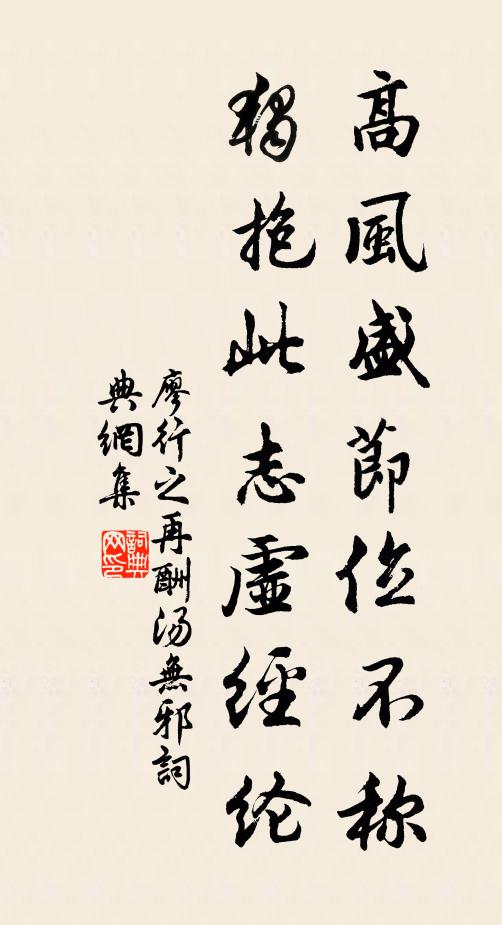 高風盛節位不称
獨抱此志虛經纶
廖行之再酬汤無邪詞
典網集
詞典
网印